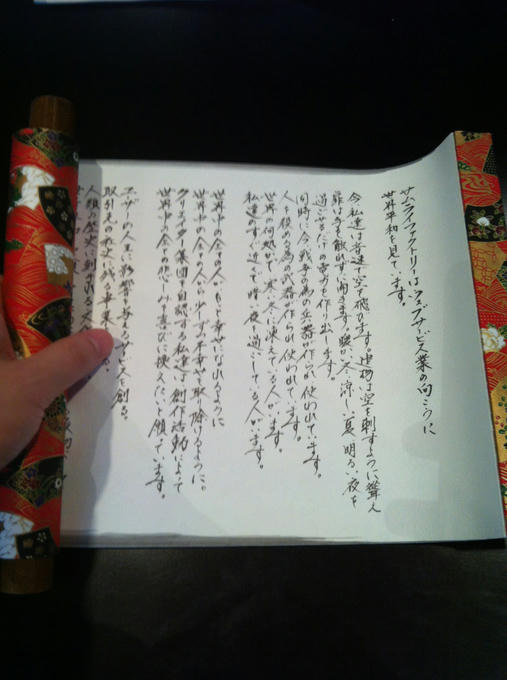 サムライファクトリーはウェブサービス業の向こうに
世界平和を見ています。
今私達は音速で空を飛びます。建物は空を刺すように聳え
扉は手を触れずに開きます。暖かい冬、涼しい夏、明るい夜を
過ごせるだけの電力を作り出します。
同時に今戦争の為の兵器が作られ使われています。
人を殺める為の武器が作られ使われています。
世界の何処かで寒い冬に凍えている人がいます。
私達のすぐ近くで暗い夜を過ごしている人がいます。
世界中の全ての人がもっと幸せになれるように
世界中の全ての人から少しずつ不幸せを取り除けるように。
クリエイター集団を自認する私達は創作活動によって
世界中の全ての悲しみを喜びに換えたいと願っています。
ユーザーの人生に影響を与えるサービスを創る。
取引先の社史に残る事業を
人類の歴史に刻まれる